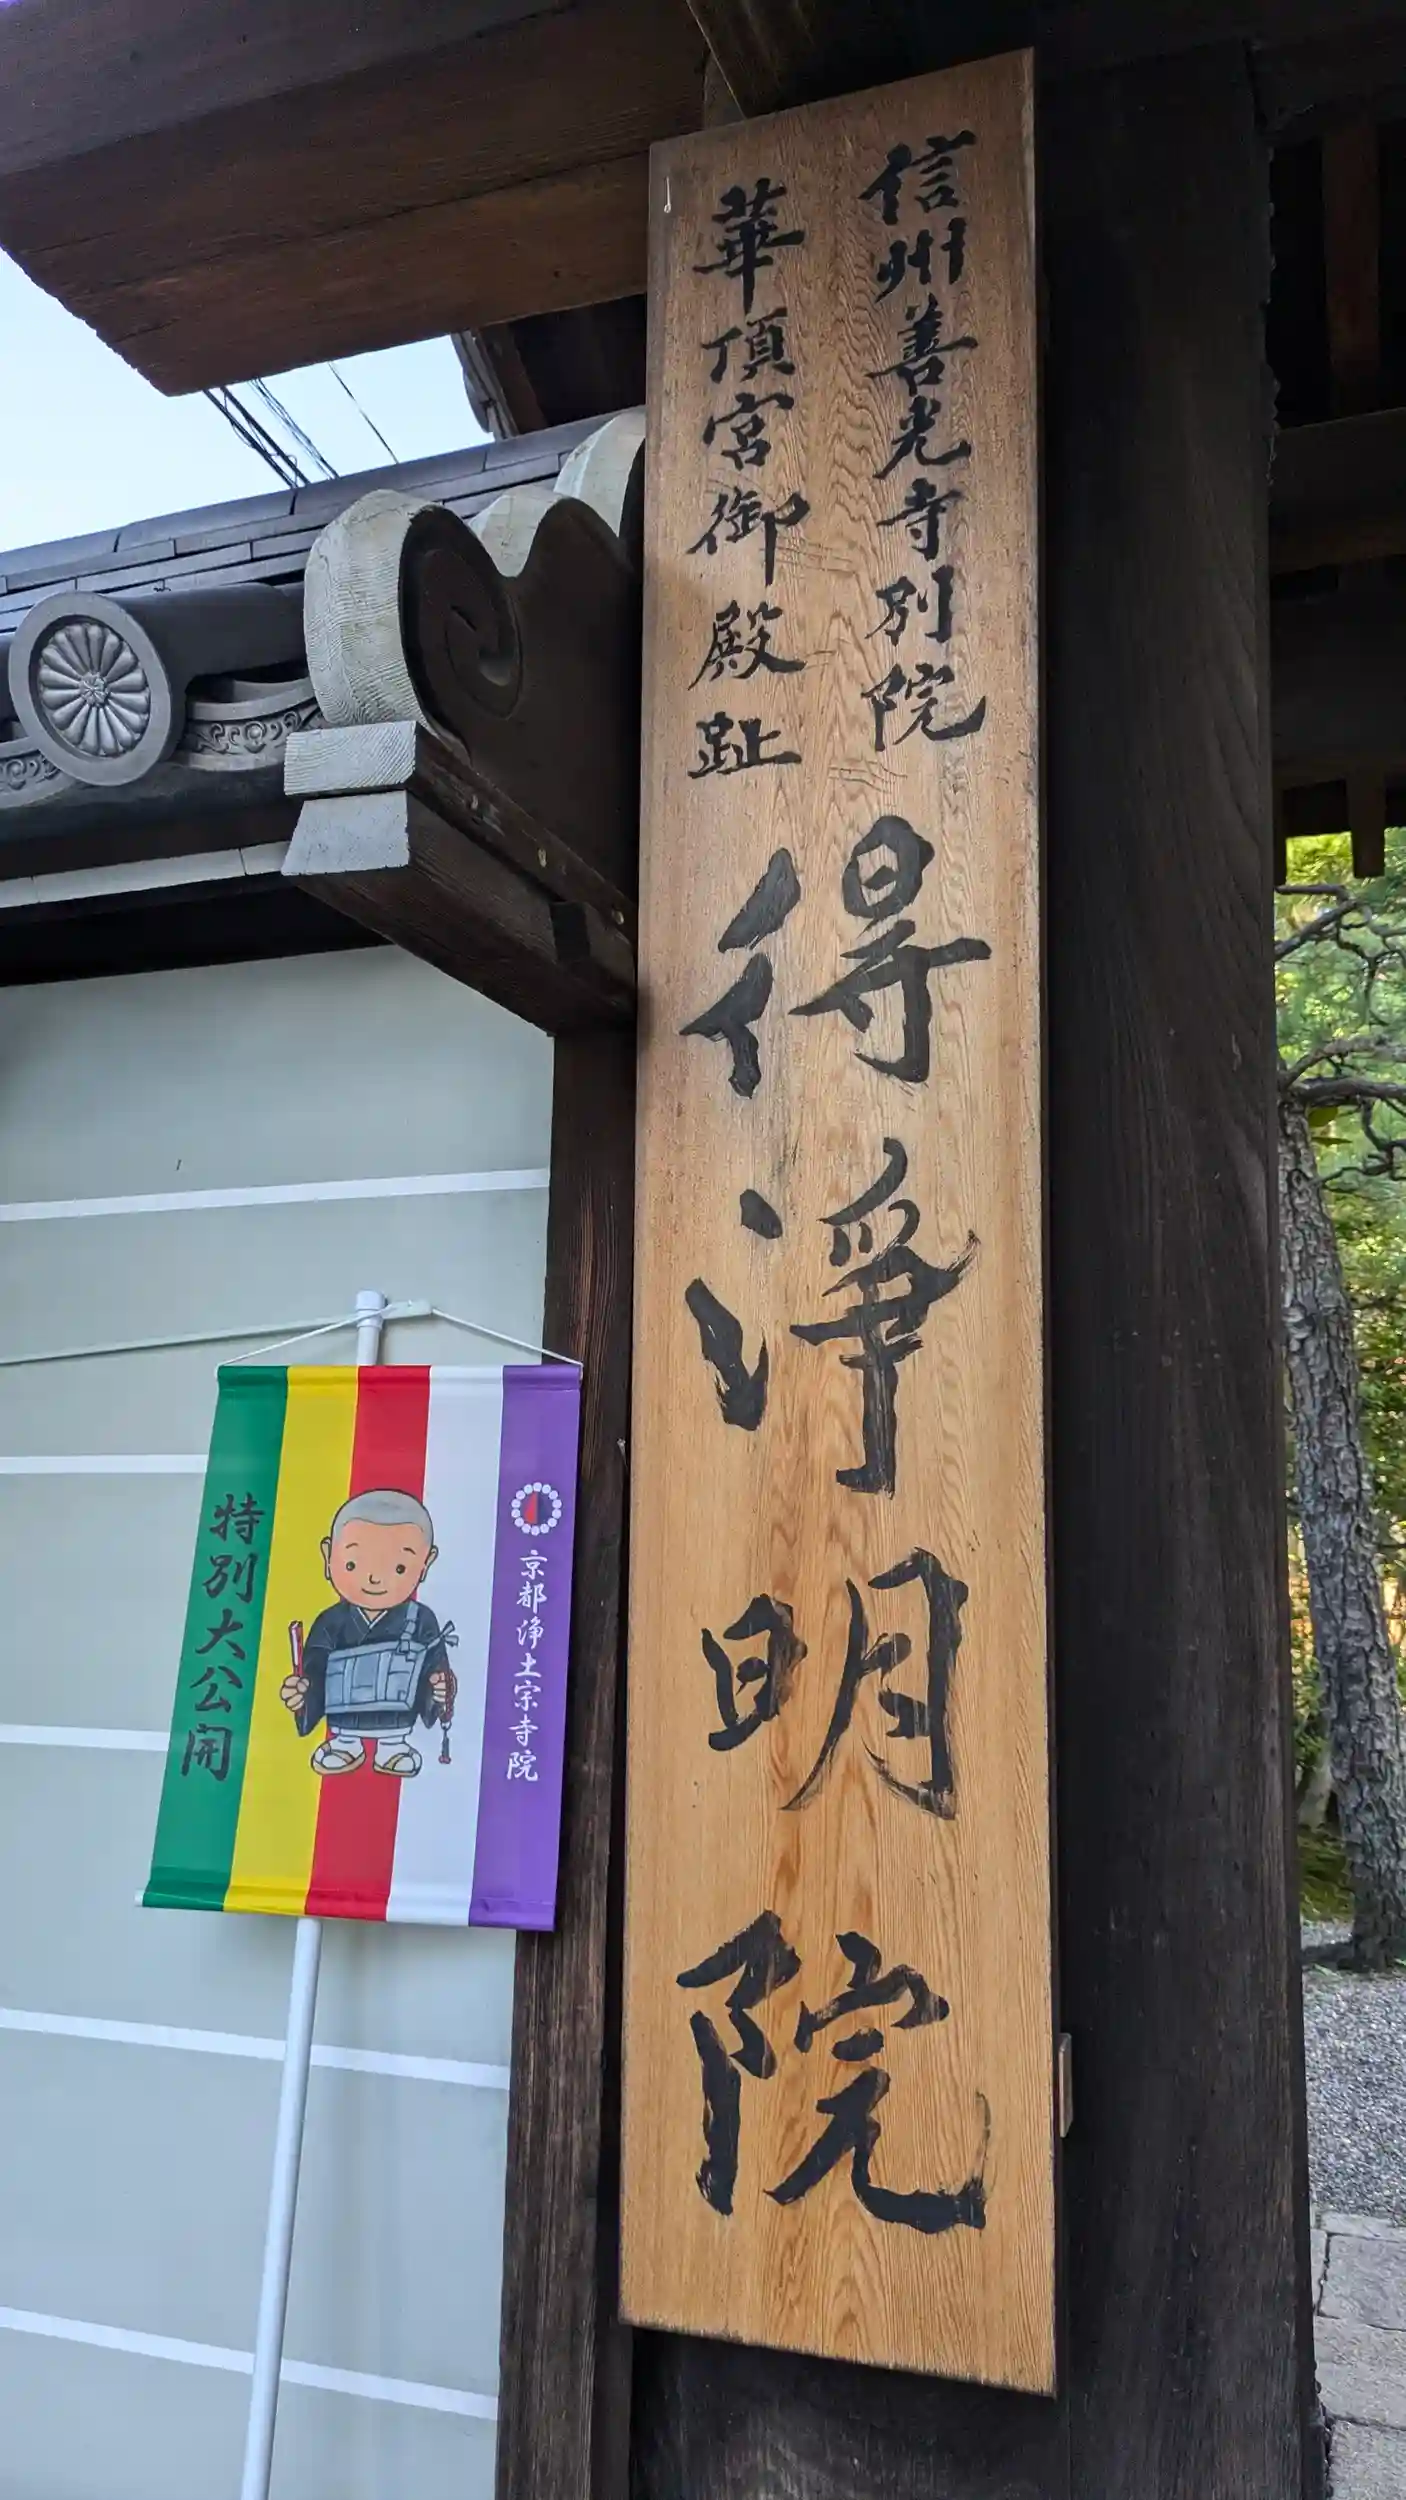 信州善光寺別院
華頂宮御殿趾
得浄明院
京都浄土宗寺院
特別大公開